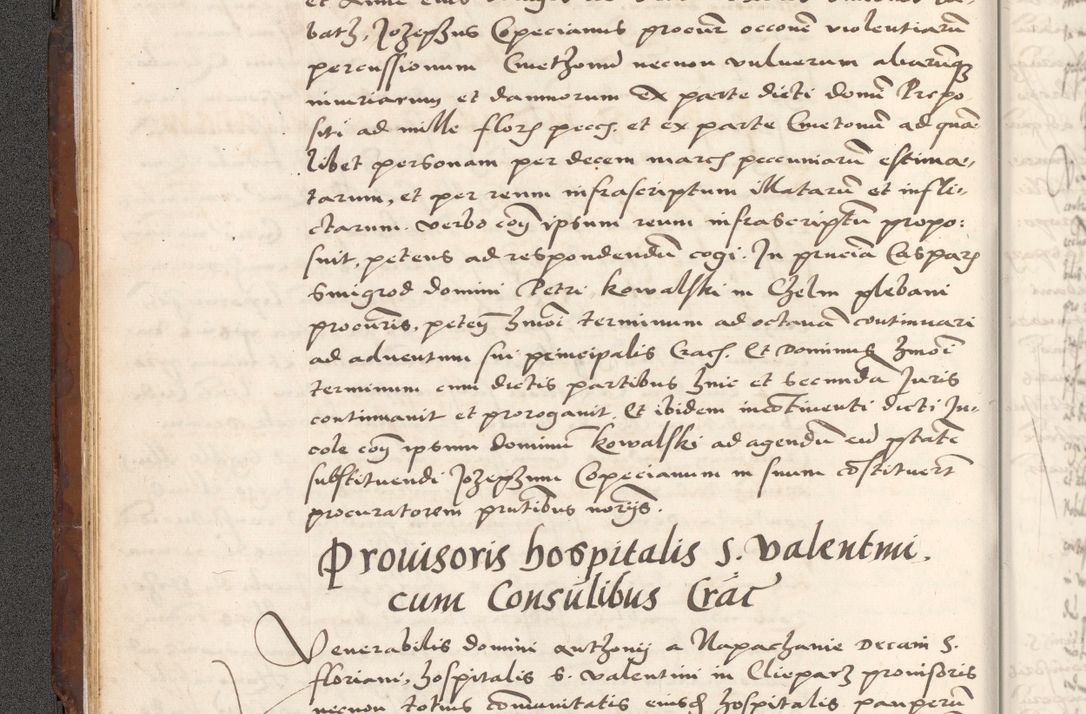 batz, Jozephus Copecianus procur occone violentiarū
percussionum Cmethonū necnon vulnerum aliarūq3
iniuriarum et damnorum Ex parte dicti domī Prepo
siti ad mille floreñ pecch. et ex parte Cmetonū ad quā
libet personam per decem march peccuniarū estima-
tarum, et per reum infrascriptum illatarū et infli-
ctarum. verbo coñ ipsum reum infrascriptū propo:
suit, petens ad respondendū cogi. In pnciā Caspar
Smigrod domini Petri Kowalski in Chelm plebani
procuris, peteñ hmōi terminum ad octauā continuari
ad aduentum sui principalis Crach. Et Dominus hmōi
terminum cum dictis partibus hinc et secundā Juris
continuauit et prorogauit. Et ibidem incōtinenti dicti In-
cole coñ ipsum dominū Kowalski ad agendū cū ptāte
substituendi Jozephum Copecianum in suum cōstituert
procuratorem pntibus norijs.
Prouisoris hospitalis S. Valentini.
cum Consulibus Crac
Venerabilis domini anthonij a Napachanie Decani S.
floriani, hospitalis S. Valentini in Clieparz prouisoris
necnon totius cōmunitatis eiusd hospitalis pauperū